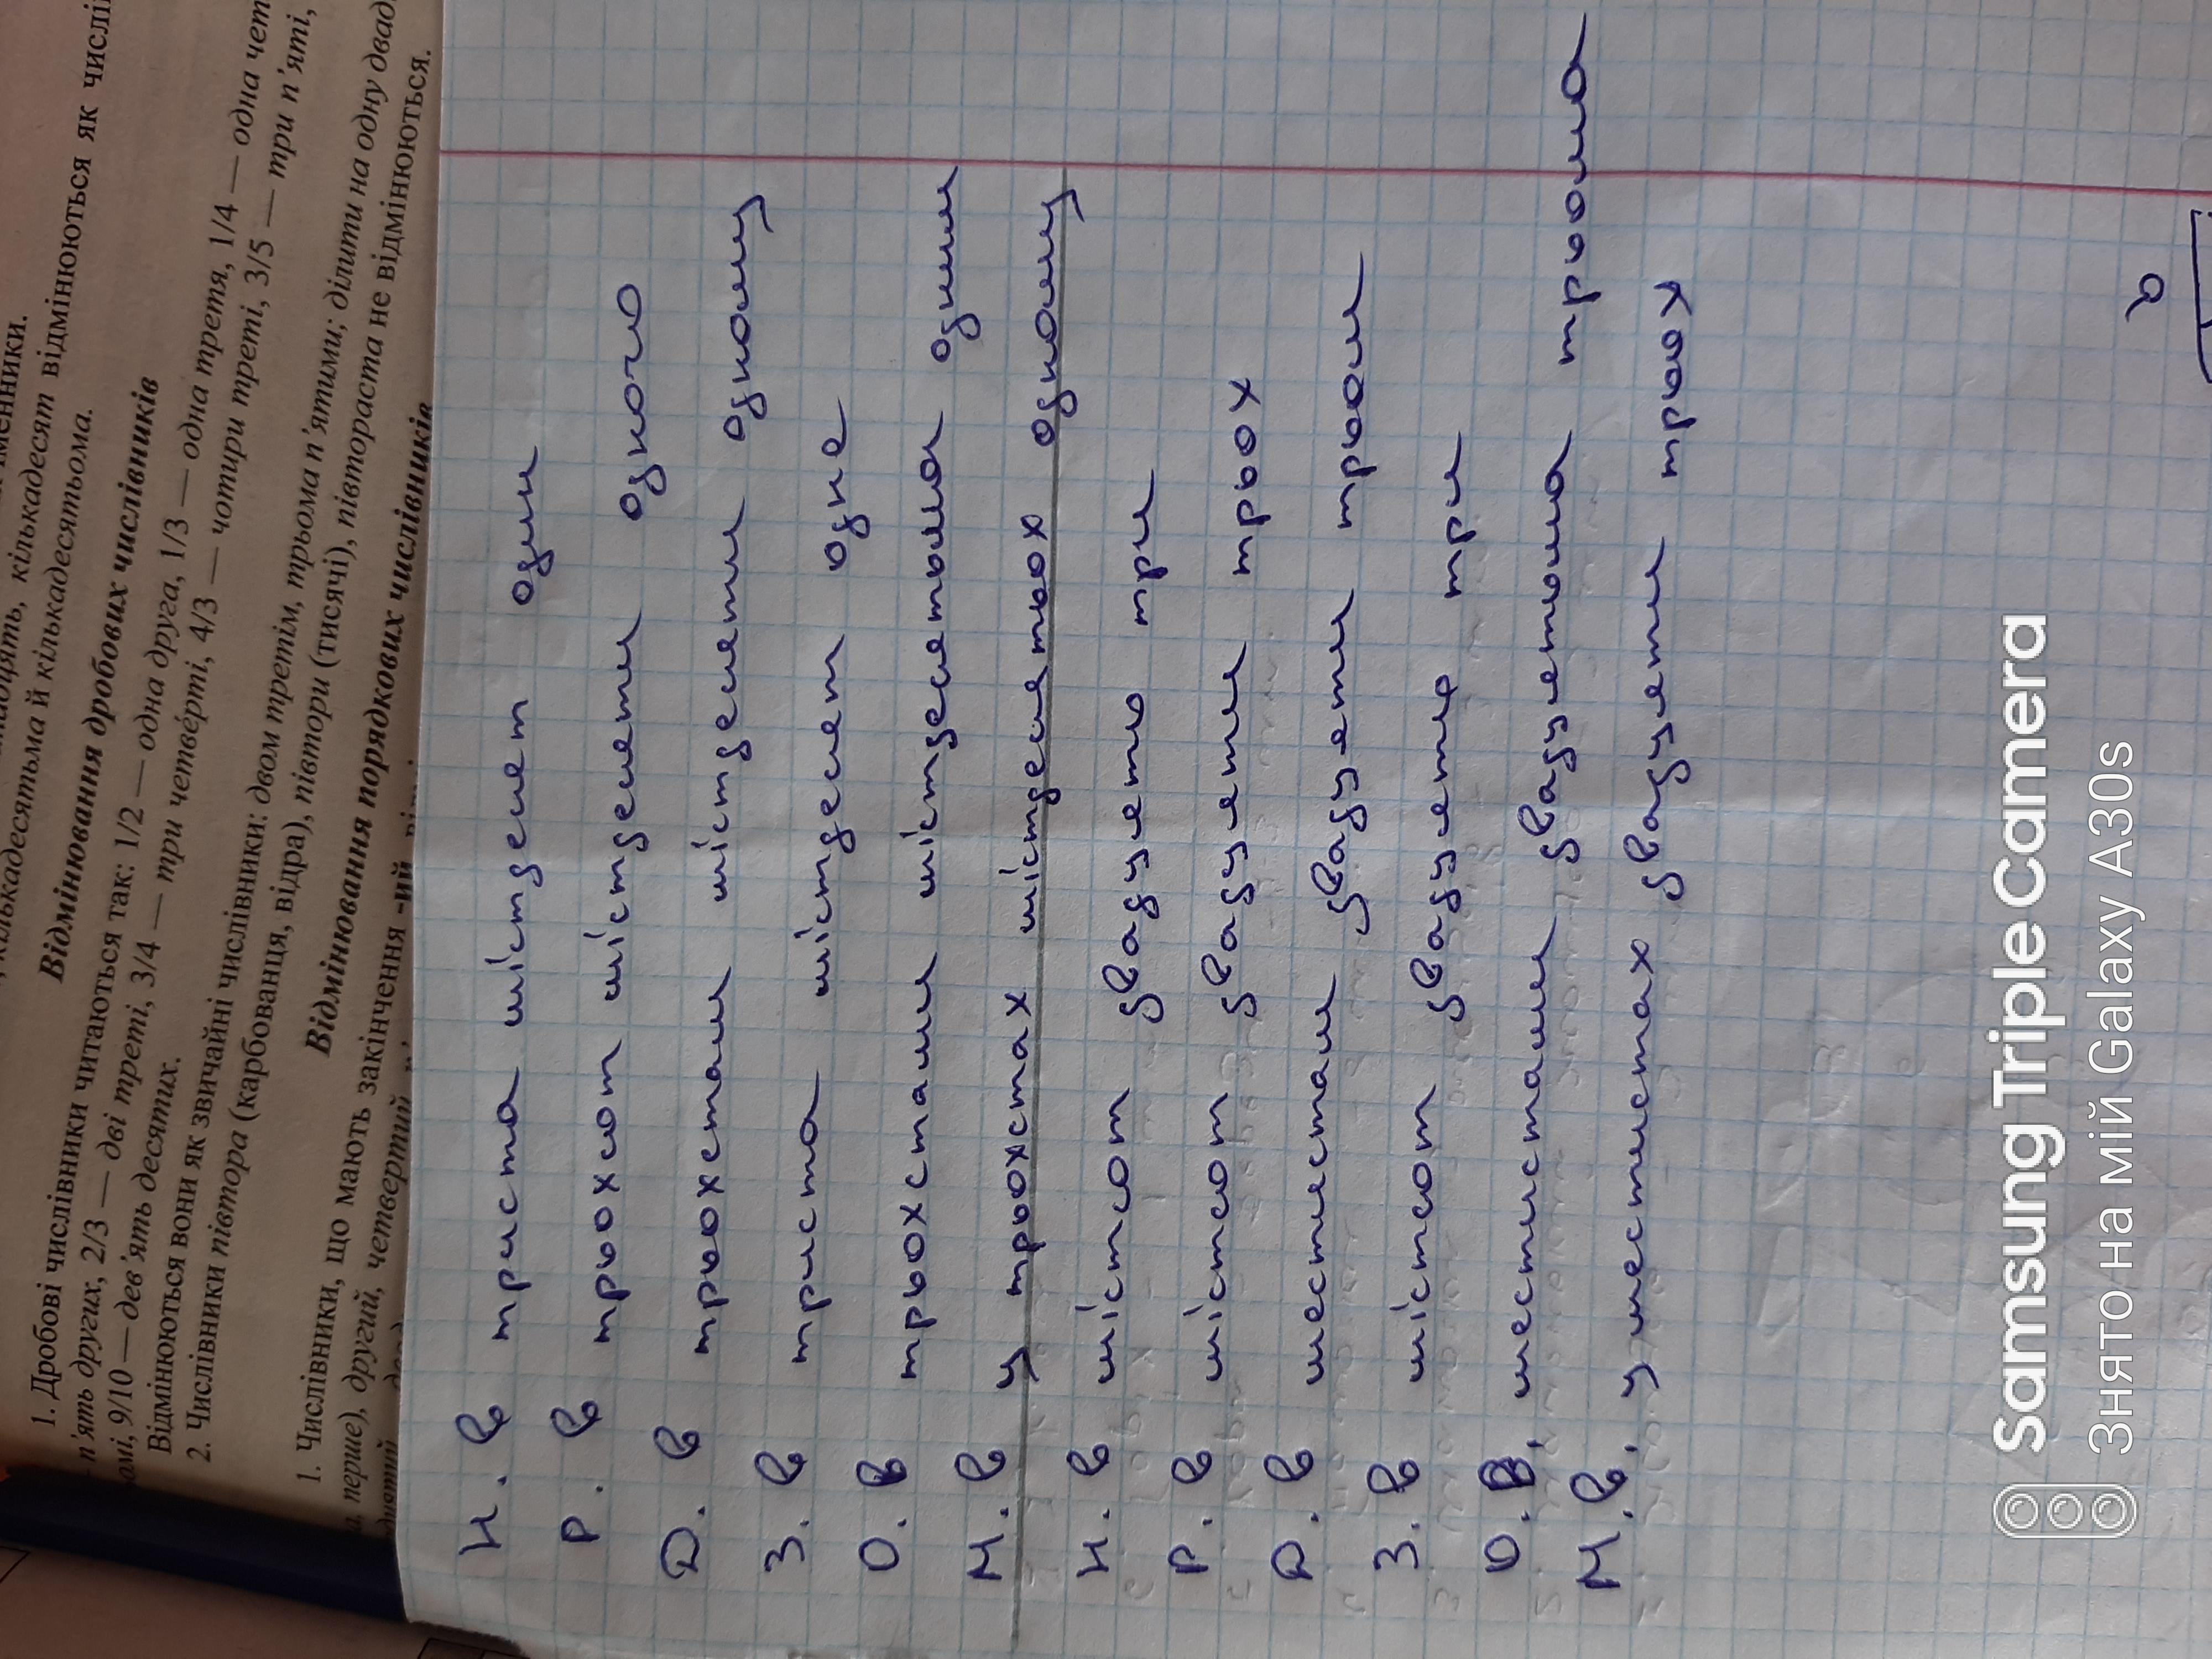 менники.
кількадесят відмінюються як числі
кількадесятьма й кількадесятьома.
Відмінювання дробових числівників
1. Дробові числівники читаються так: 1/2 — одна друга, 1/3 — одна третя, 1/4 — одна чет
п'ять других, 2/3 — дві треті, 3/4 — три четвéрті, 4/3 — чотири треті, 3/5 — три п'яті,
амі, 9/10 — дев'ять десятих.
Відмінюються вони як звичайні числівники: двом третім, трьома п'ятими; ділити на одну двад
2. Числівники півтора (карбованця, відра), півтори (тисячі), півтораста не відмінюються.
Відмінювання порядкових числівників
1. Числівники, що мають закінчення -ий
а, перше), другий, четвертий
Н. в триста шістдесят один
Р. в трьохсот шістдесяти одного
Д. в трьохстам шістдесяти одному
З. в триста шістдесят одне
О. в трьохстами шістдесятьома одним
М. в у трьохстах шістдесятьох одному
Н. в шістсот двадцять три
Р. в шістсот двадцяти трьох
Д. в шестистам двадцяти трьом
З. в шістсот двадцять три
О. в. шестистами двадцятьома трьома
М. в. у шестистах двадцяти трьох
Samsung Triple Camera
Знято на мій Galaxy A30s